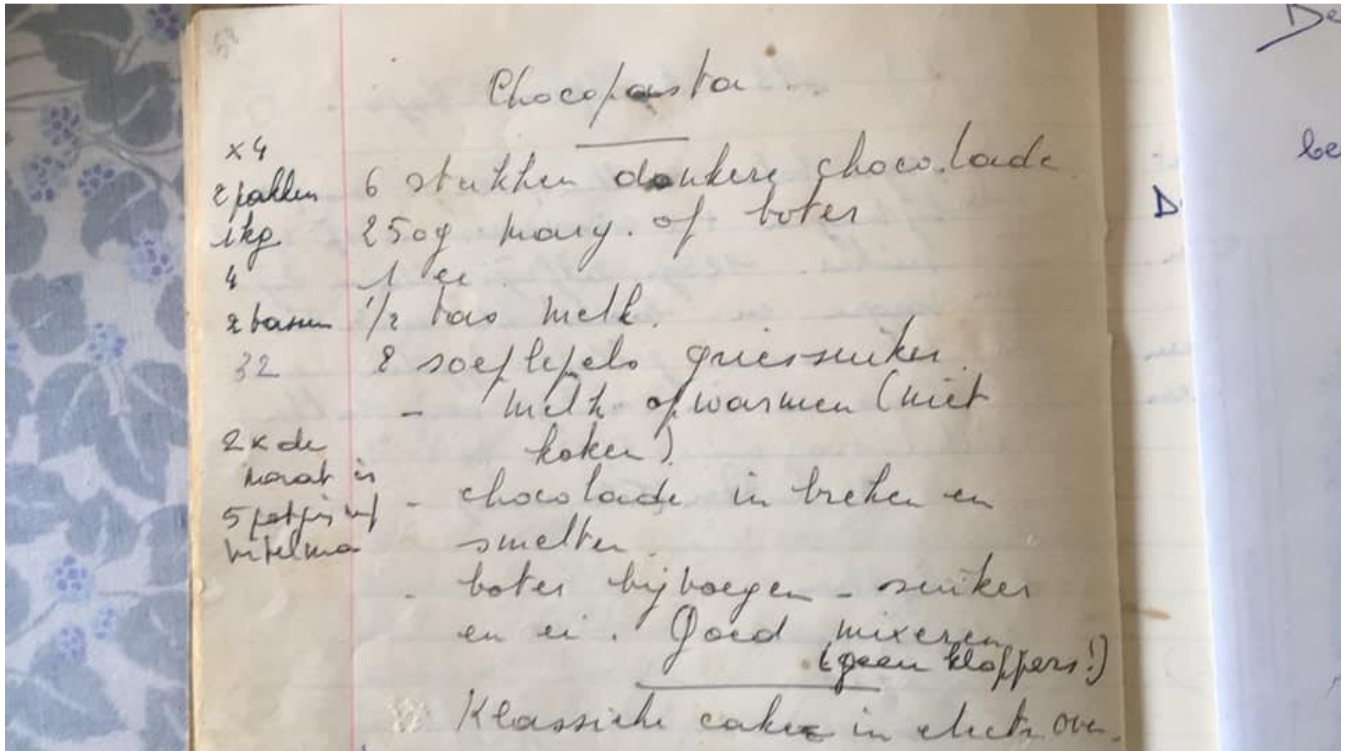 58
Chocopasta
x4
2 pakken 6 stukken donkere chocolade
1kg 250g marg. of boter
4 1 ei
2 tassen 1/2 tas melk.
32 8 soeplepels griessuiker
- melk opwarmen (niet
2x de koken).
5 potjes
- chocolade in breken en
vitelma smelten.
- boter bijvoegen - suiker
en ei. Goed mixeren
(geen kloppers!)
Klassieke cake in electr. oven.
De
be
D